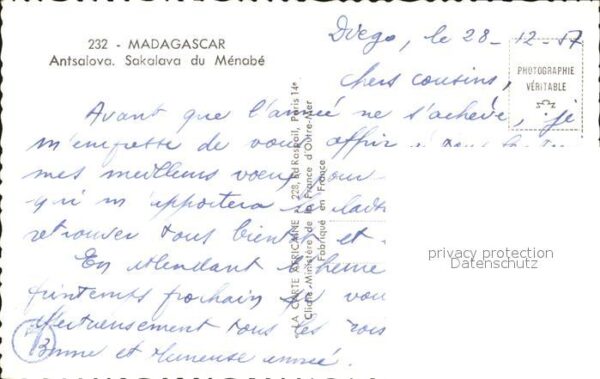 232 - MADAGASCAR
Antsalova. Sakalava du Ménabé
Diego, le 28-12-57
PHOTOGRAPHIE
VÉRITABLE
chers cousins,
Avant que l'année ne s'achève, je
m'empresse de vous offrir
mes meilleurs voeux pour
qui m'apportera
retrouver tous bientôt et
En attendant l'heure
printemps prochain je vous
tous les trois
Bonne et Heureuse année.
"LA CARTE AFRICAINE" 228, Bd Raspail, Paris 14e
Cliché Ministère de la France d'Outre-Mer
Fabriqué en France
privacy protection
Datenschutz